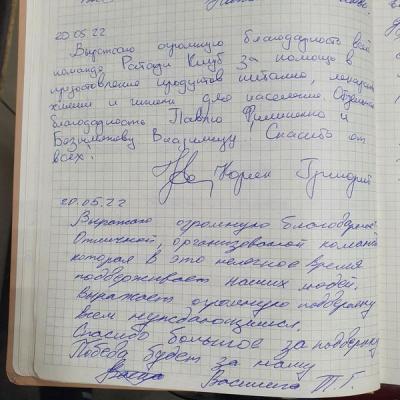 20.05.22
Выражаю огромную благодарность всей
команде Ротари Клуб за помощь в
предоставлении продуктов питание,
химии и гигиени для население. Отдельна
благодарность Павлю Филипенко и
Владимиру. Спасибо от
всех!
Григорий
20.05.22
Выражаю огромную благодарность
Отличной, организованой команде
которая в это нелегкое время
поддерживает наших людей.
Выражает огромную поддержку
всем нуждающимся.
Спасибо большое за поддержку
Победа будет за нами
Т. Г.